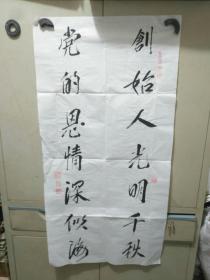 創始人光明千秋
党的恩情深似海